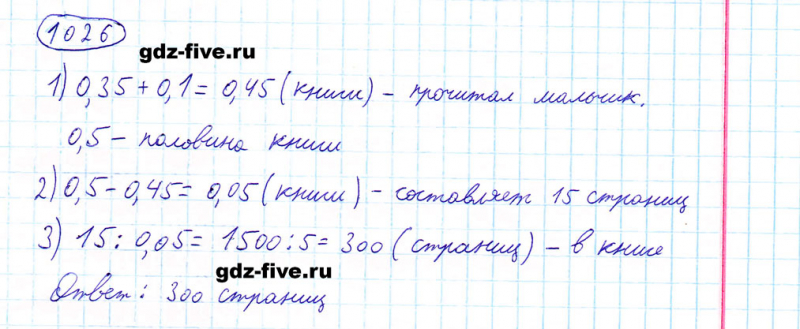 1026
gdz-five.ru
1) 0,35 + 0,1 = 0,45 (книги) - прочитал мальчик.
0,5 - половина книги
2) 0,5 - 0,45 = 0,05 (книги) - составляет 15 страниц
3) 15 : 0,05 = 1500 : 5 = 300 (страниц) - в книге
gdz-five.ru
Ответ : 300 страниц